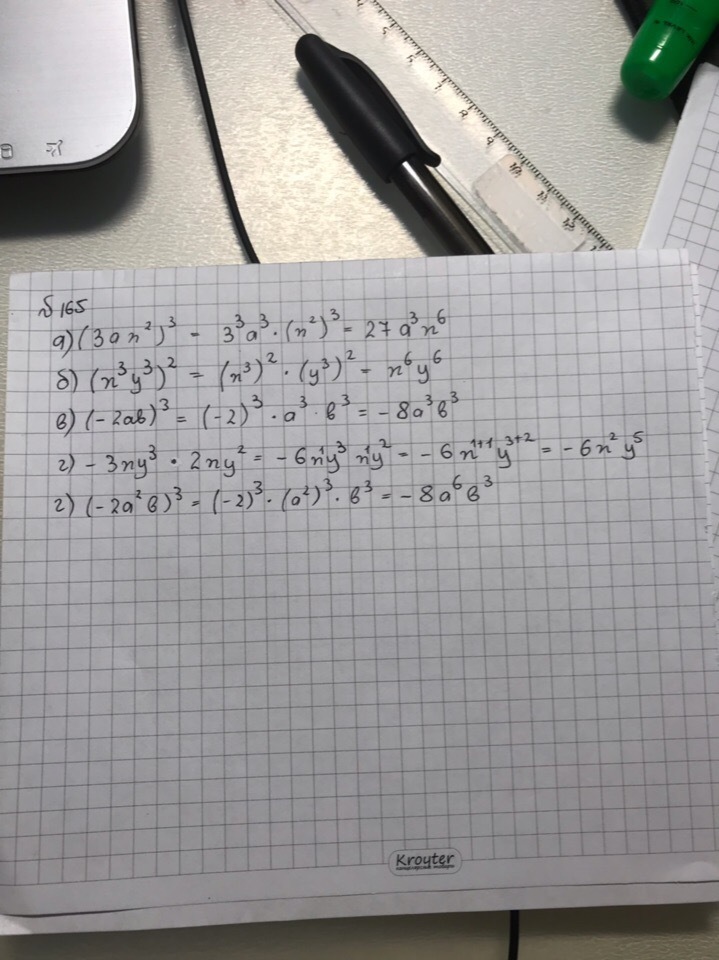 №165
а) (3an²)³ = 3³a³·(n²)³ = 27a³n⁶
б) (n³y³)² = (n³)²·(y³)² = n⁶y⁶
в) (-2ab)³ = (-2)³·a³·b³ = -8a³b³
г) -3ny³·2ny² = -6n¹y³n¹y² = -6n¹⁺¹y³⁺² = -6n²y⁵
г) (-2a²b)³ = (-2)³·(a²)³·b³ = -8a⁶b³
Kroyter